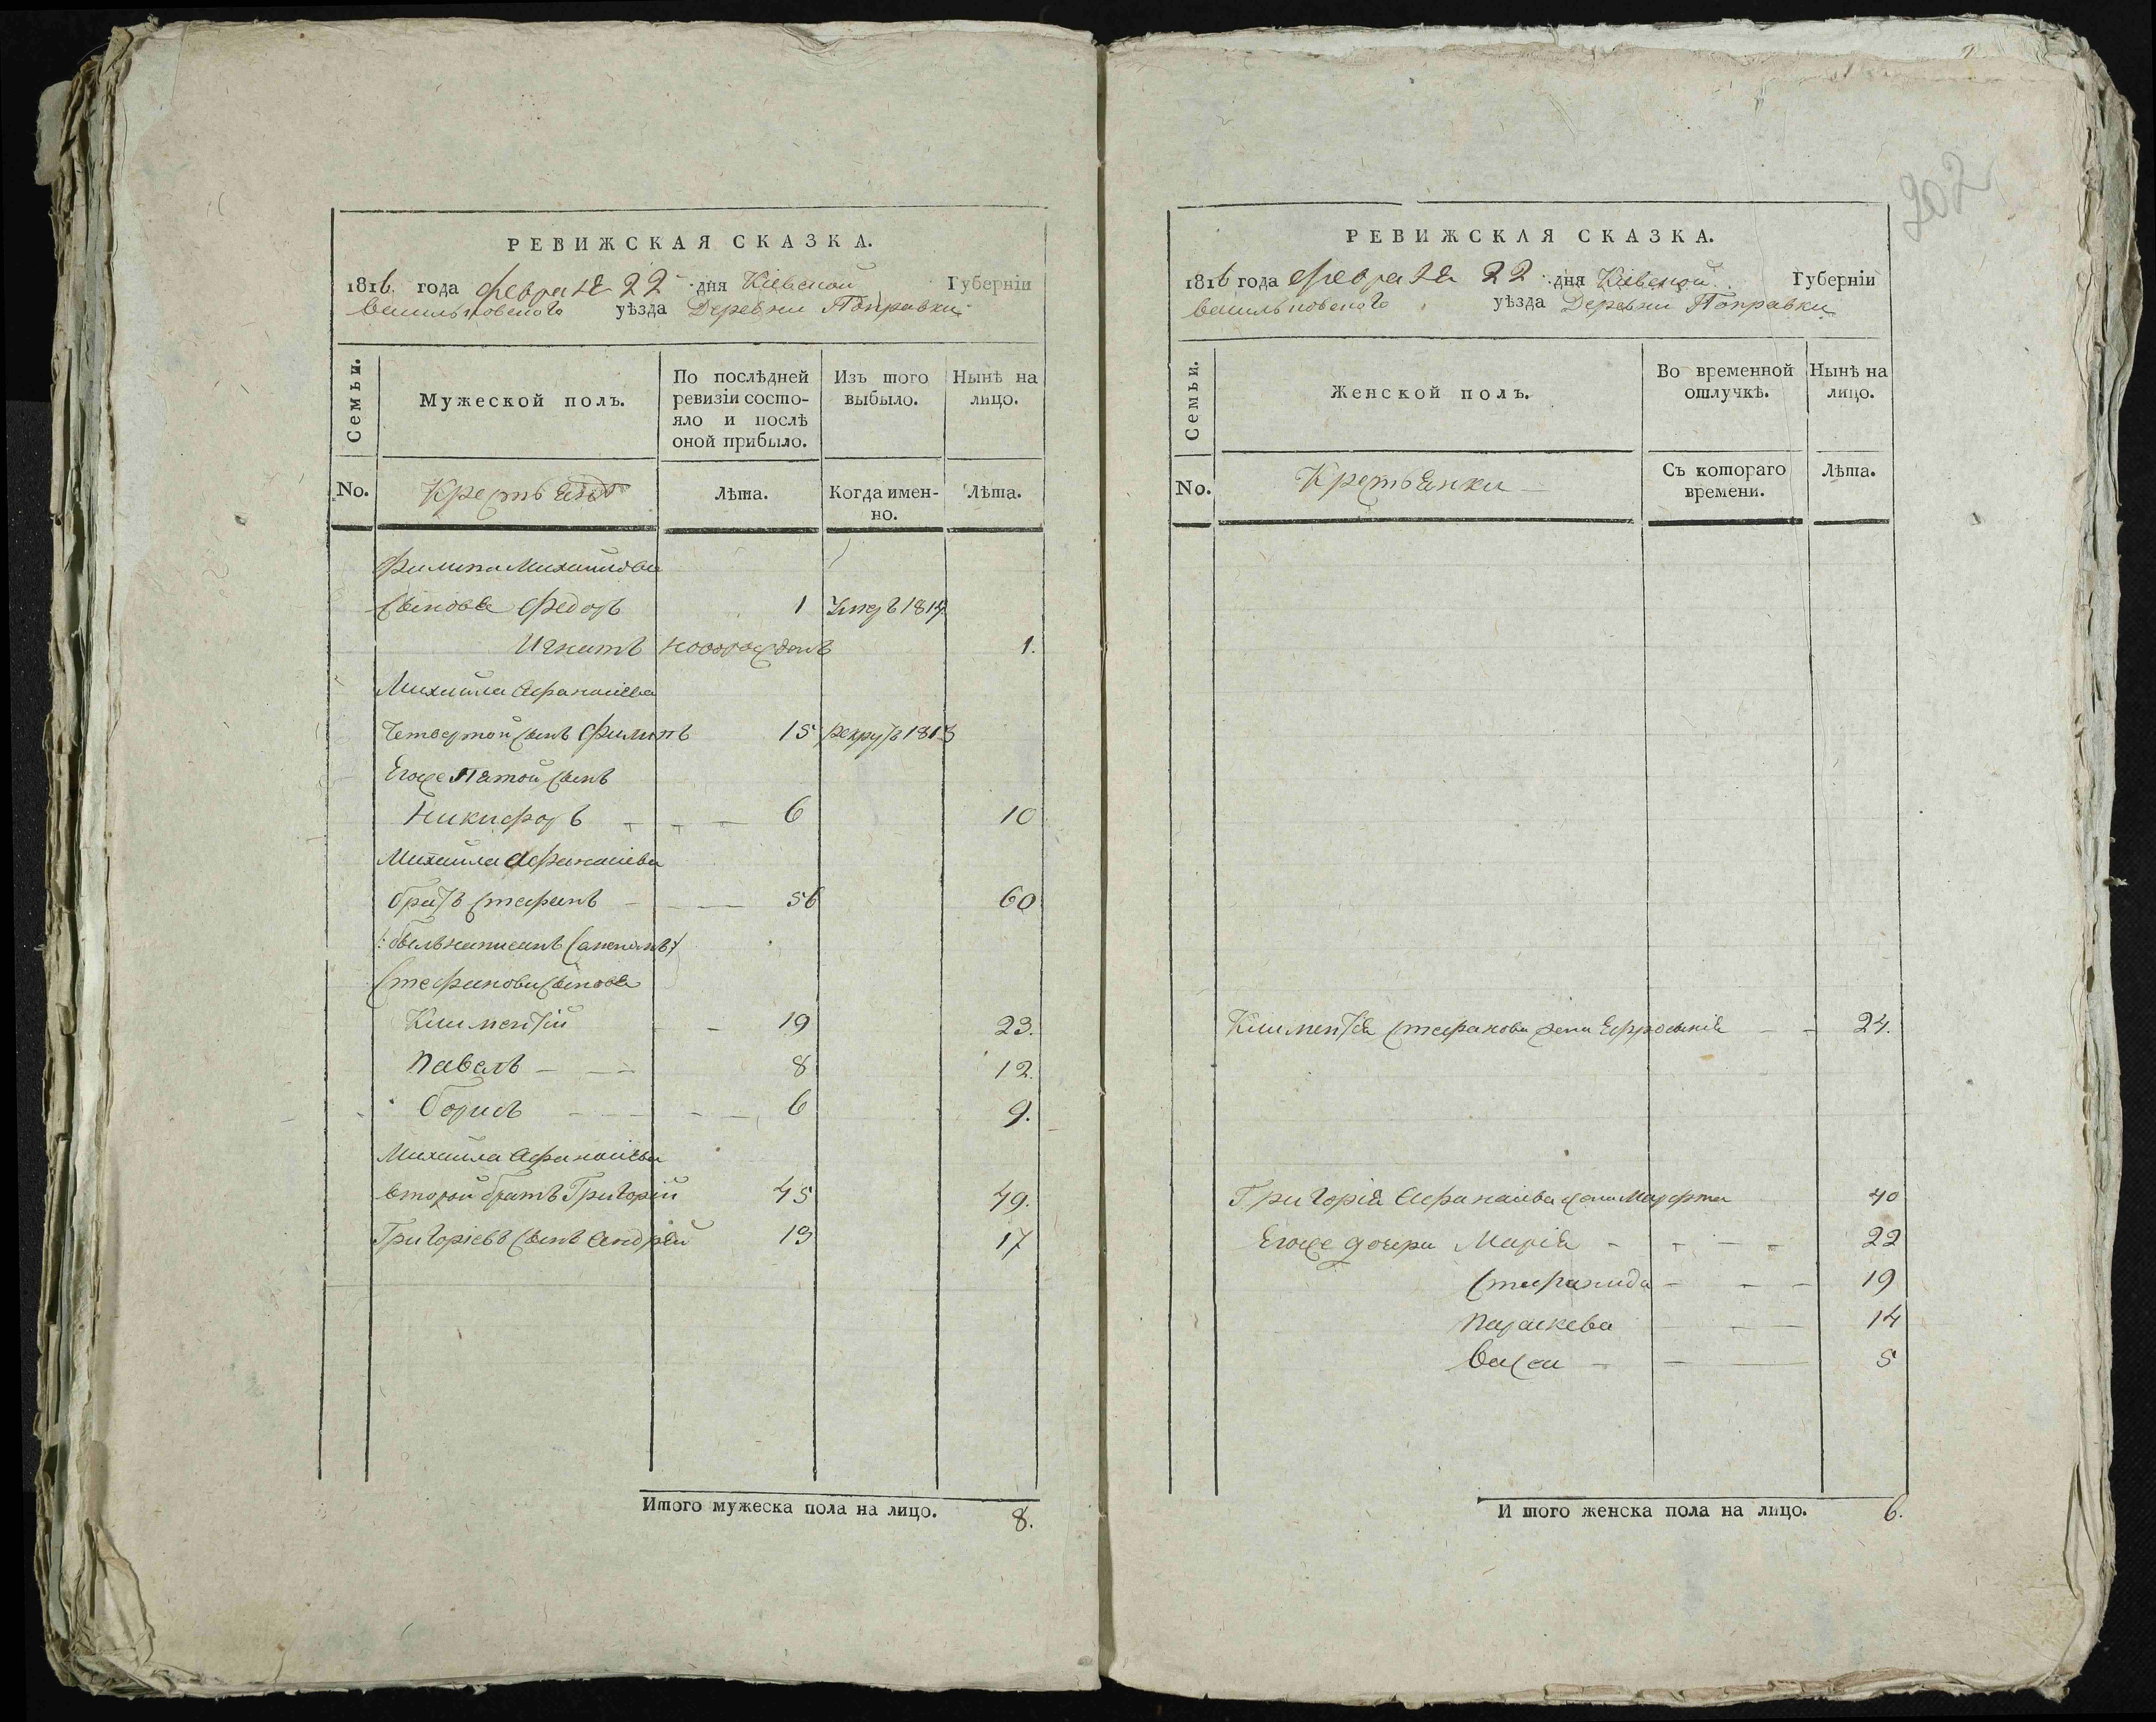 РЕВИЖСКАЯ СКАЗКА.
1816 года февраля 22 дня Кіевской Губерніи
Васильковского уѣзда Деревни Поправки
Семьи.
Мужеской полъ.
По послѣдней ревизіи состояло и послѣ оной прибыло.
Изъ того выбыло.
Нынѣ на лицо.
No. Крестьянъ Лѣта. Когда именно. Лѣта.
Филипа Михайлова
Сыновья Федоръ 1 Умеръ 1814
Игнатъ новорожденъ 1.
Михайла Афанасіева
Четвертой сынъ Филипъ 15 рекрутъ 1813
Егоже Пятой сынъ
Никифоръ 6 10
Михайла Афанасіева
братъ Стефанъ 56 60
/:былъ написанъ :/
Стефанови Сыновья
Климентій 19 23.
Павелъ 8 12.
Борисъ 6 9.
Михайла Афанасіева
второй братъ Григорій 45 49.
Григоріевъ сынъ Андрей 13 17
Итого мужеска пола на лицо. 8.
202
РЕВИЖСКАЯ СКАЗКА.
1816 года февраля 22 дня Кіевской Губерніи
Васильковского уѣзда Деревни Поправки
Семьи.
Женской полъ.
Во временной отлучкѣ.
Нынѣ на лицо.
No. Крестьянки Съ котораго времени. Лѣта.
Климентія Стефанова жена Ефросинія 24.
Григорія Афанасіева жена Марфа 40
Егоже дочери Марія 22
Стефанида 19
Параскева 14
Васса 5
И того женска пола на лицо. 6.